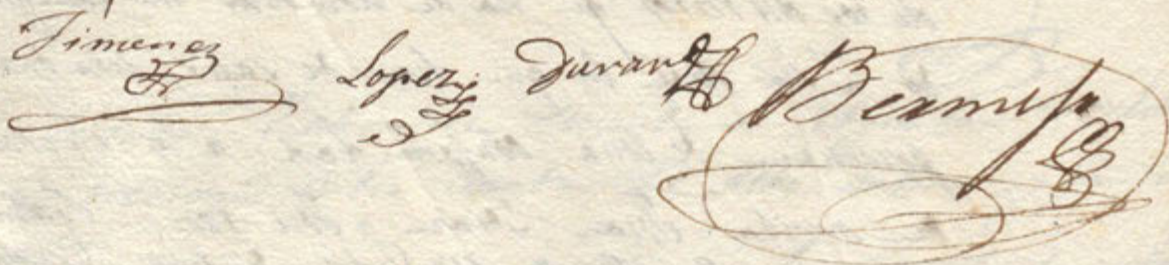 Jimenez Lopez Duran Bermejo